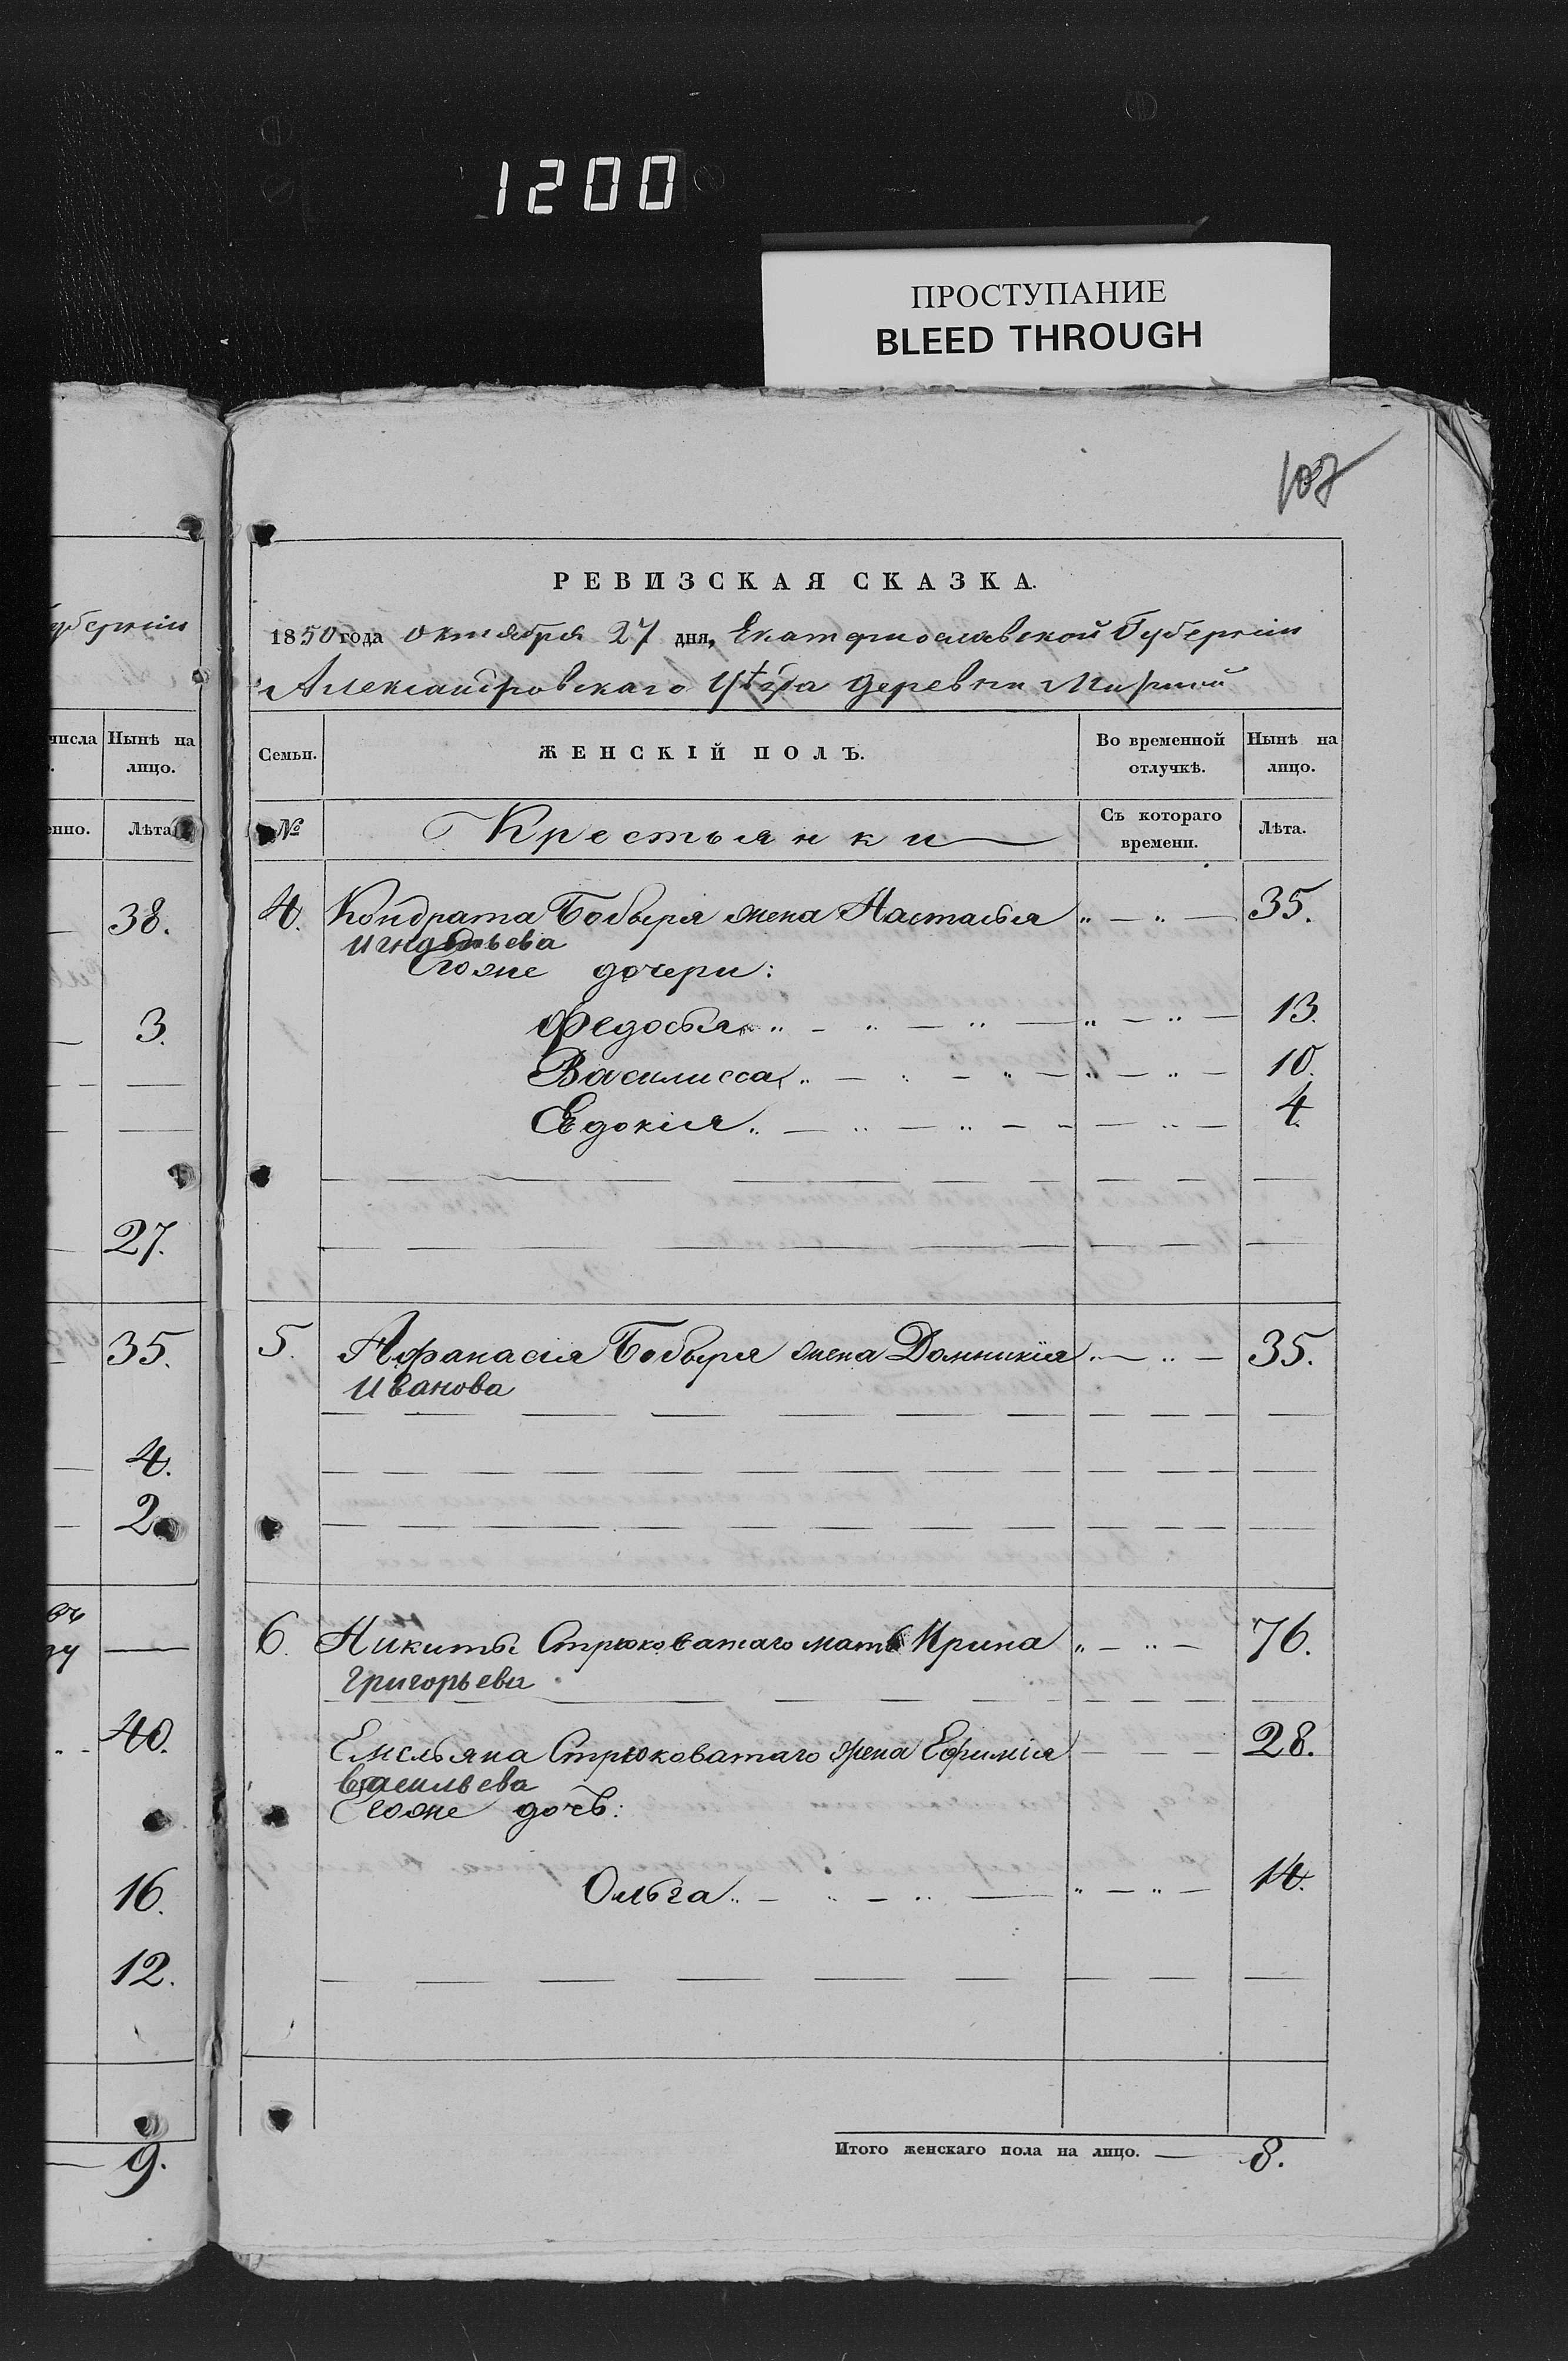 1200
ПРОСТУПАНИЕ
BLEED THROUGH
107
РЕВИЗСКАЯ СКАЗКА.
1850 года октября 27 дня, Екатеринославской Губернiи
Александровскаго Уѣзда деревни Мирной
Семьи.
ЖЕНСКІЙ ПОЛЪ.
Во временной отлучкѣ.
Нынѣ на лицо.
№
Крестьянки
Съ котораго времени.
Лѣта.
4. Кондрата Бобыря жена Настасья „ — „ — 35.
Игнатьева
Егоже дочери:
Федосья „ — „ — „ — „ — „ — 13.
Василисса „ — „ — „ — „ — „ — 10.
Евдокія „ — „ — „ — — — „ — 4.
5. Афанасія Бобыря жена Домникія „ — „ — 35.
Иванова
6. Никиты Стрюковатаго мать Ирина „ — „ — 76.
Григорьева
Емельяна Стрюковатаго жена Ефимія — — — 28.
Васильева
Егоже дочь:
Ольга „ — „ — „ — „ — „ — 14.
Итого женскаго пола на лицо. — 8.
губернiи
числа
Нынѣ на лицо.
Лѣта
38.
3.
27.
35.
4.
2
40.
16.
12.
9.